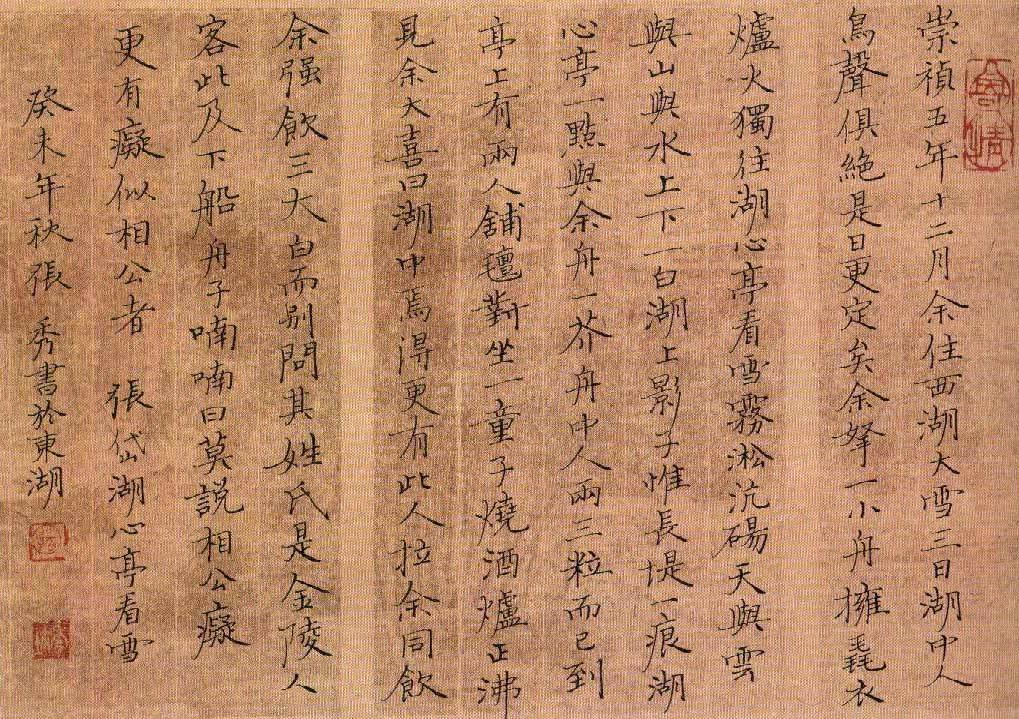 寄情
崇禎五年十二月余住西湖大雪三日湖中人
鳥聲俱絶是日更定矣余拏一小舟擁毳衣
爐火獨往湖心亭看雪霧淞沆碭天與雲
與山與水上下一白湖上影子惟長堤一痕湖
心亭一點與余舟一芥舟中人兩三粒而已到
亭上有兩人舖氊對坐一童子燒酒爐正沸
見余大喜曰湖中焉得更有此人拉余同飲
余强飲三大白而别問其姓氏是金陵人
客此及下船舟子喃喃曰莫説相公癡
更有癡似相公者 張岱湖心亭看雪
癸未年秋張 秀書於東湖